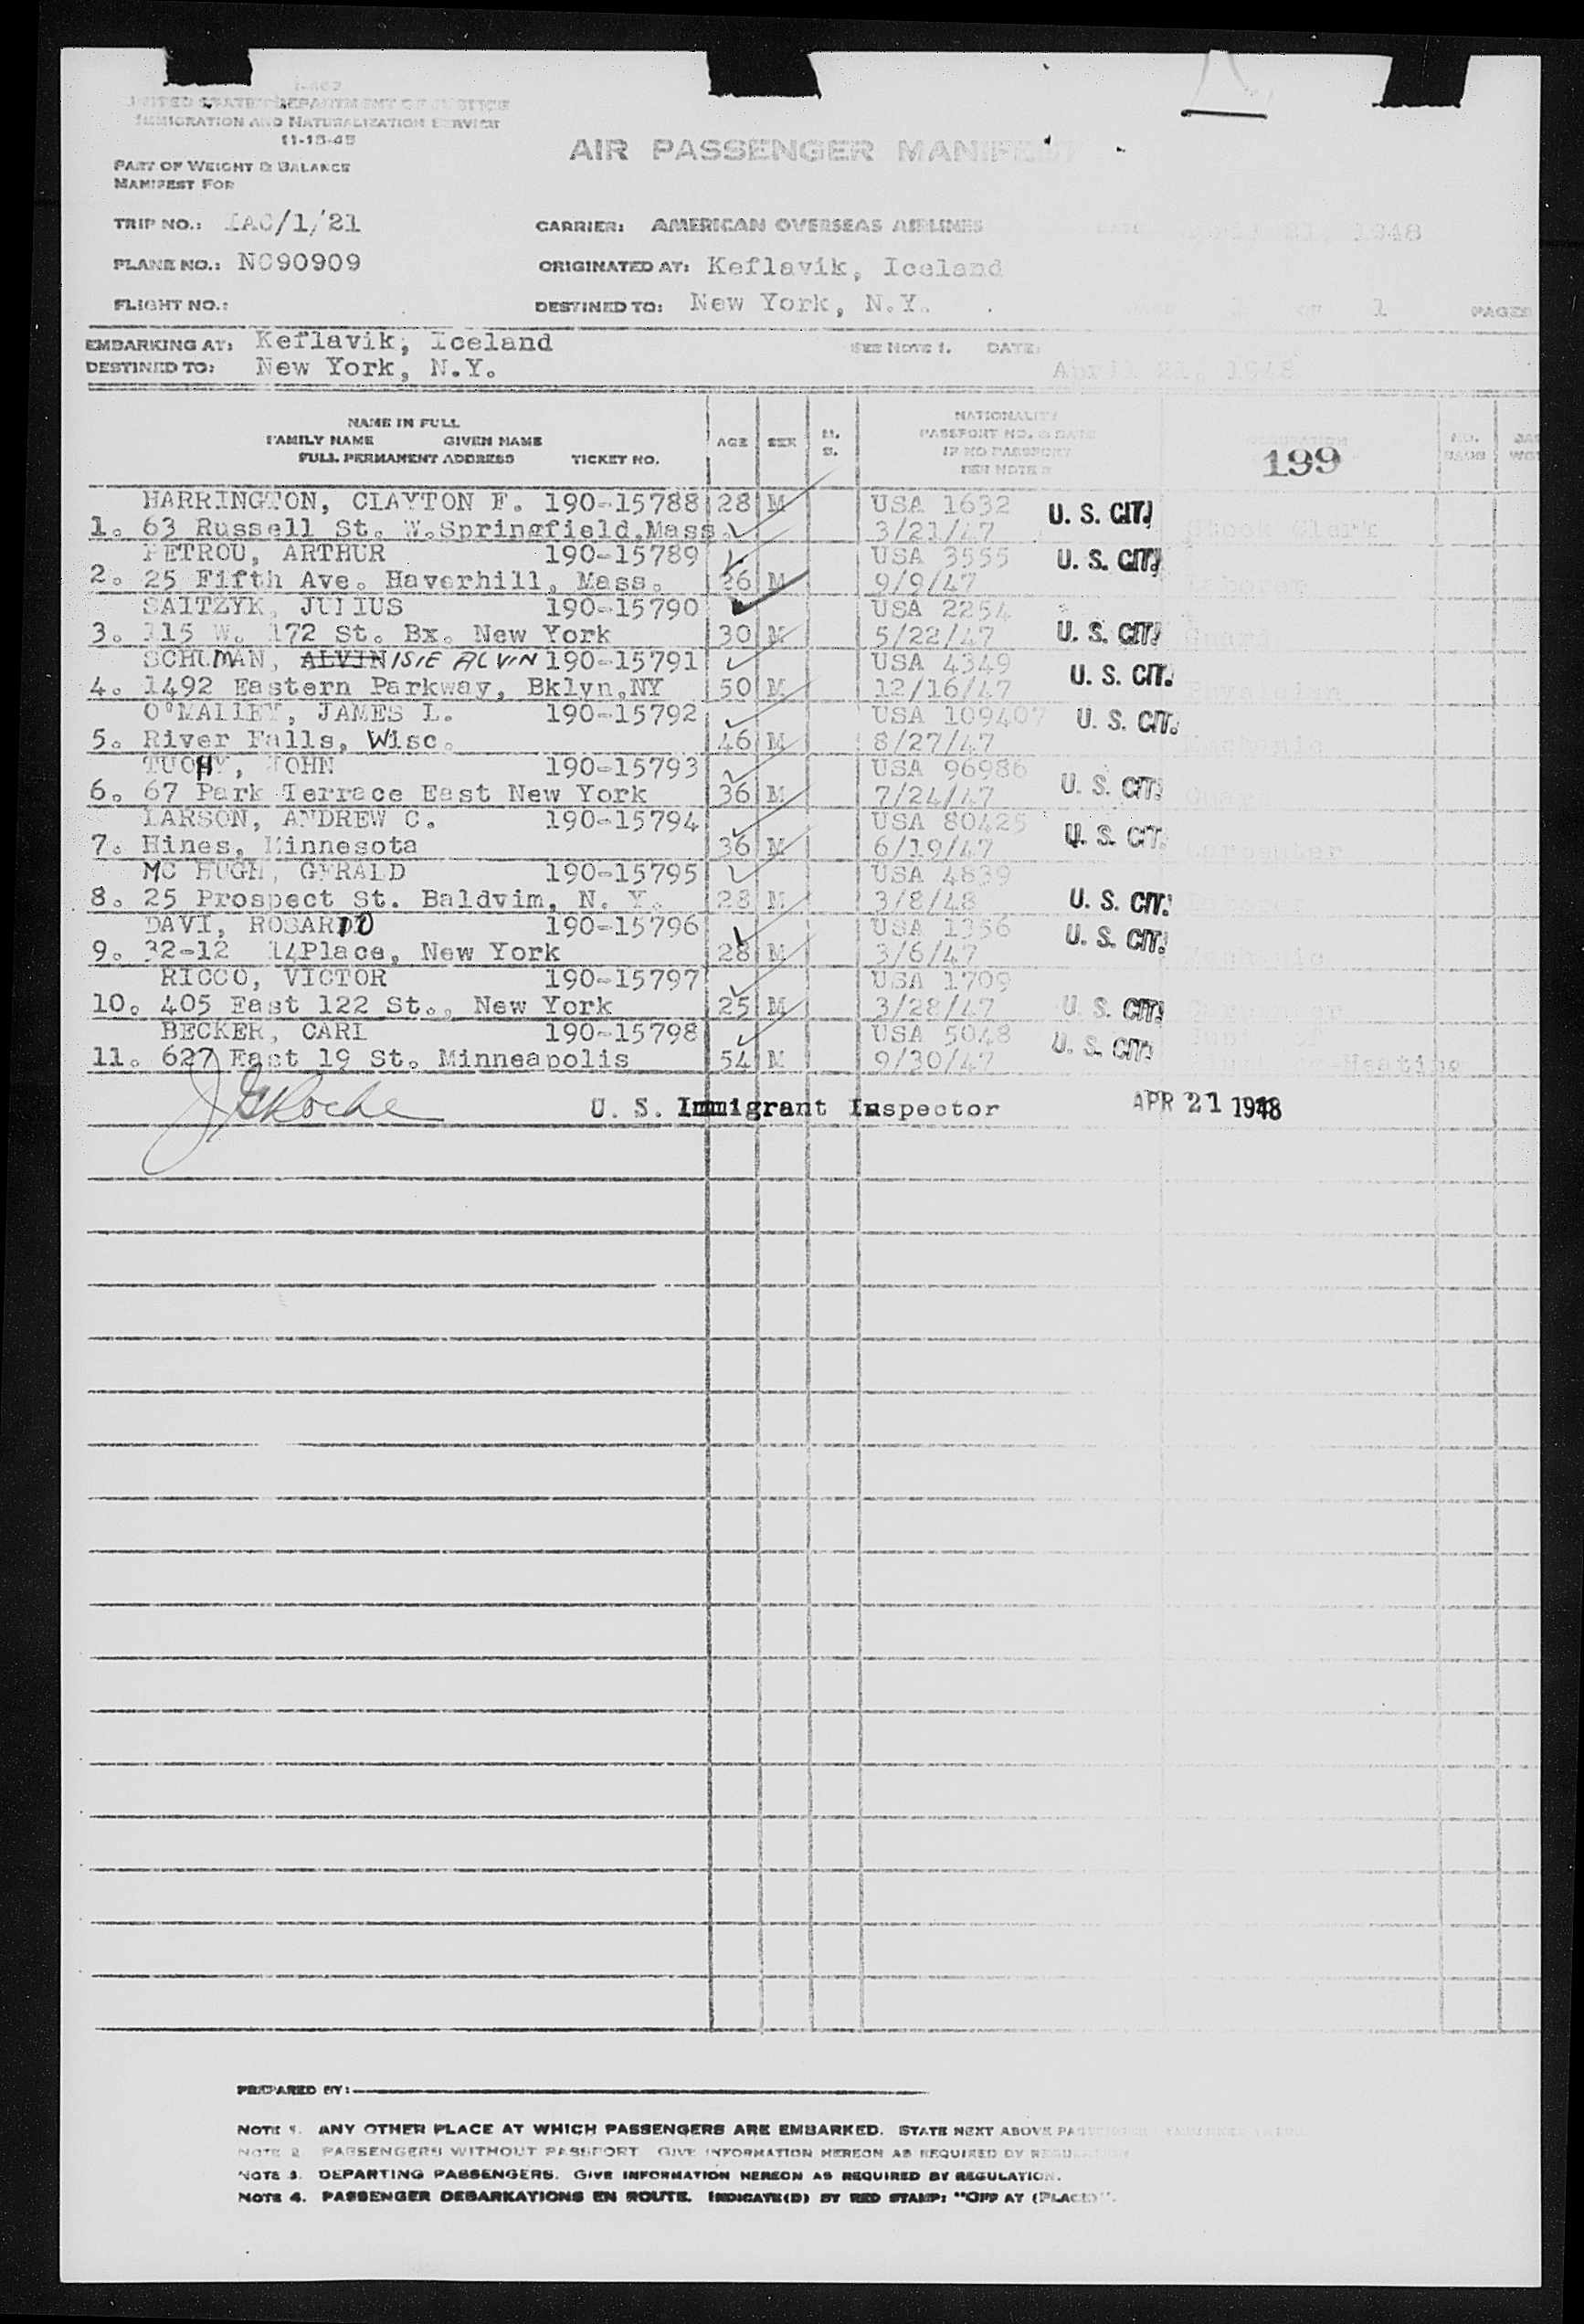 I-462
UNITED STATES DEPARTMENT OF JUSTICE
IMMIGRATION AND NATURALIZATION SERVICE
11-15-45
AIR PASSENGER MANIFEST
PART OF WEIGHT & BALANCE
MANIFEST FOR
TRIP NO.: IAC/1/21 CARRIER: AMERICAN OVERSEAS AIRLINES DATE April 21, 1948
PLANE NO.: NC90909 ORIGINATED AT: Keflavik, Iceland
FLIGHT NO.: DESTINED TO: New York, N.Y. 1 OF 1 PAGES
EMBARKING AT: Keflavik, Iceland SEE NOTE 1. DATE:
DESTINED TO: New York, N.Y. April 21, 1948
NAME IN FULL
FAMILY NAME GIVEN NAME
FULL PERMANENT ADDRESS TICKET NO.
AGE SEX M. S.
NATIONALITY
PASSPORT NO. & DATE
IF NO PASSPORT
SEE NOTE 2
OCCUPATION
199
NO. BAGS
HARRINGTON, CLAYTON F. 190-15788 28 M USA 1632 U. S. CIT.
1. 63 Russell St. W.Springfield,Mass. 3/21/47 Stock Clerk
PETROU, ARTHUR 190-15789 USA 3555 U. S. CIT.
2. 25 Fifth Ave. Haverhill, Mass. 26 M 9/9/47
SAITZYK, JULIUS 190-15790 USA 2254
3. 115 W. 172 St. Bx. New York 30 M 5/22/47 U. S. CIT. Guard
SCHUMAN, ALVIN ISIE ALVIN 190-15791 USA 4349
4. 1492 Eastern Parkway, Bklyn,NY 50 M 12/16/47 U. S. CIT. Physician
O'MALLEY, JAMES L. 190-15792 USA 109407 U. S. CIT.
5. River Falls, Wisc. 46 M 8/27/47 Mechanic
TUOHY, JOHN 190-15793 USA 96986
6. 67 Park Terrace East New York 36 M 7/24/47 U. S. CIT.
LARSON, ANDREW C. 190-15794 USA 80425
7. Hines, Minnesota 36 M 6/19/47 U. S. CIT. Carpenter
MC HUGH, GERALD 190-15795 USA 4839
8. 25 Prospect St. Baldvim, N. Y. 28 M 3/8/48 U. S. CIT.
DAVI, ROSARIO 190-15796 USA 1356 U. S. CIT.
9. 32-12 14Place, New York 28 M 3/6/47 Mechanic
RICCO, VICTOR 190-15797 USA 1709
10. 405 East 122 St., New York 25 M 3/28/47 U. S. CIT.
BECKER, CARL 190-15798 USA 5048 U. S. CIT.
11. 627 East 19 St. Minneapolis 54 M 9/30/47 Heating
J G Roche U. S. Immigrant Inspector APR 21 1948
PREPARED BY:
NOTE 1. ANY OTHER PLACE AT WHICH PASSENGERS ARE EMBARKED. STATE NEXT ABOVE
NOTE 2. PASSENGERS WITHOUT PASSPORT. GIVE INFORMATION HEREON AS REQUIRED BY REGULATION
NOTE 3. DEPARTING PASSENGERS. GIVE INFORMATION HEREON AS REQUIRED BY REGULATION.
NOTE 4. PASSENGER DEBARKATIONS EN ROUTE. INDICATE(D) BY RED STAMP: "OFF AT (PLACE)".